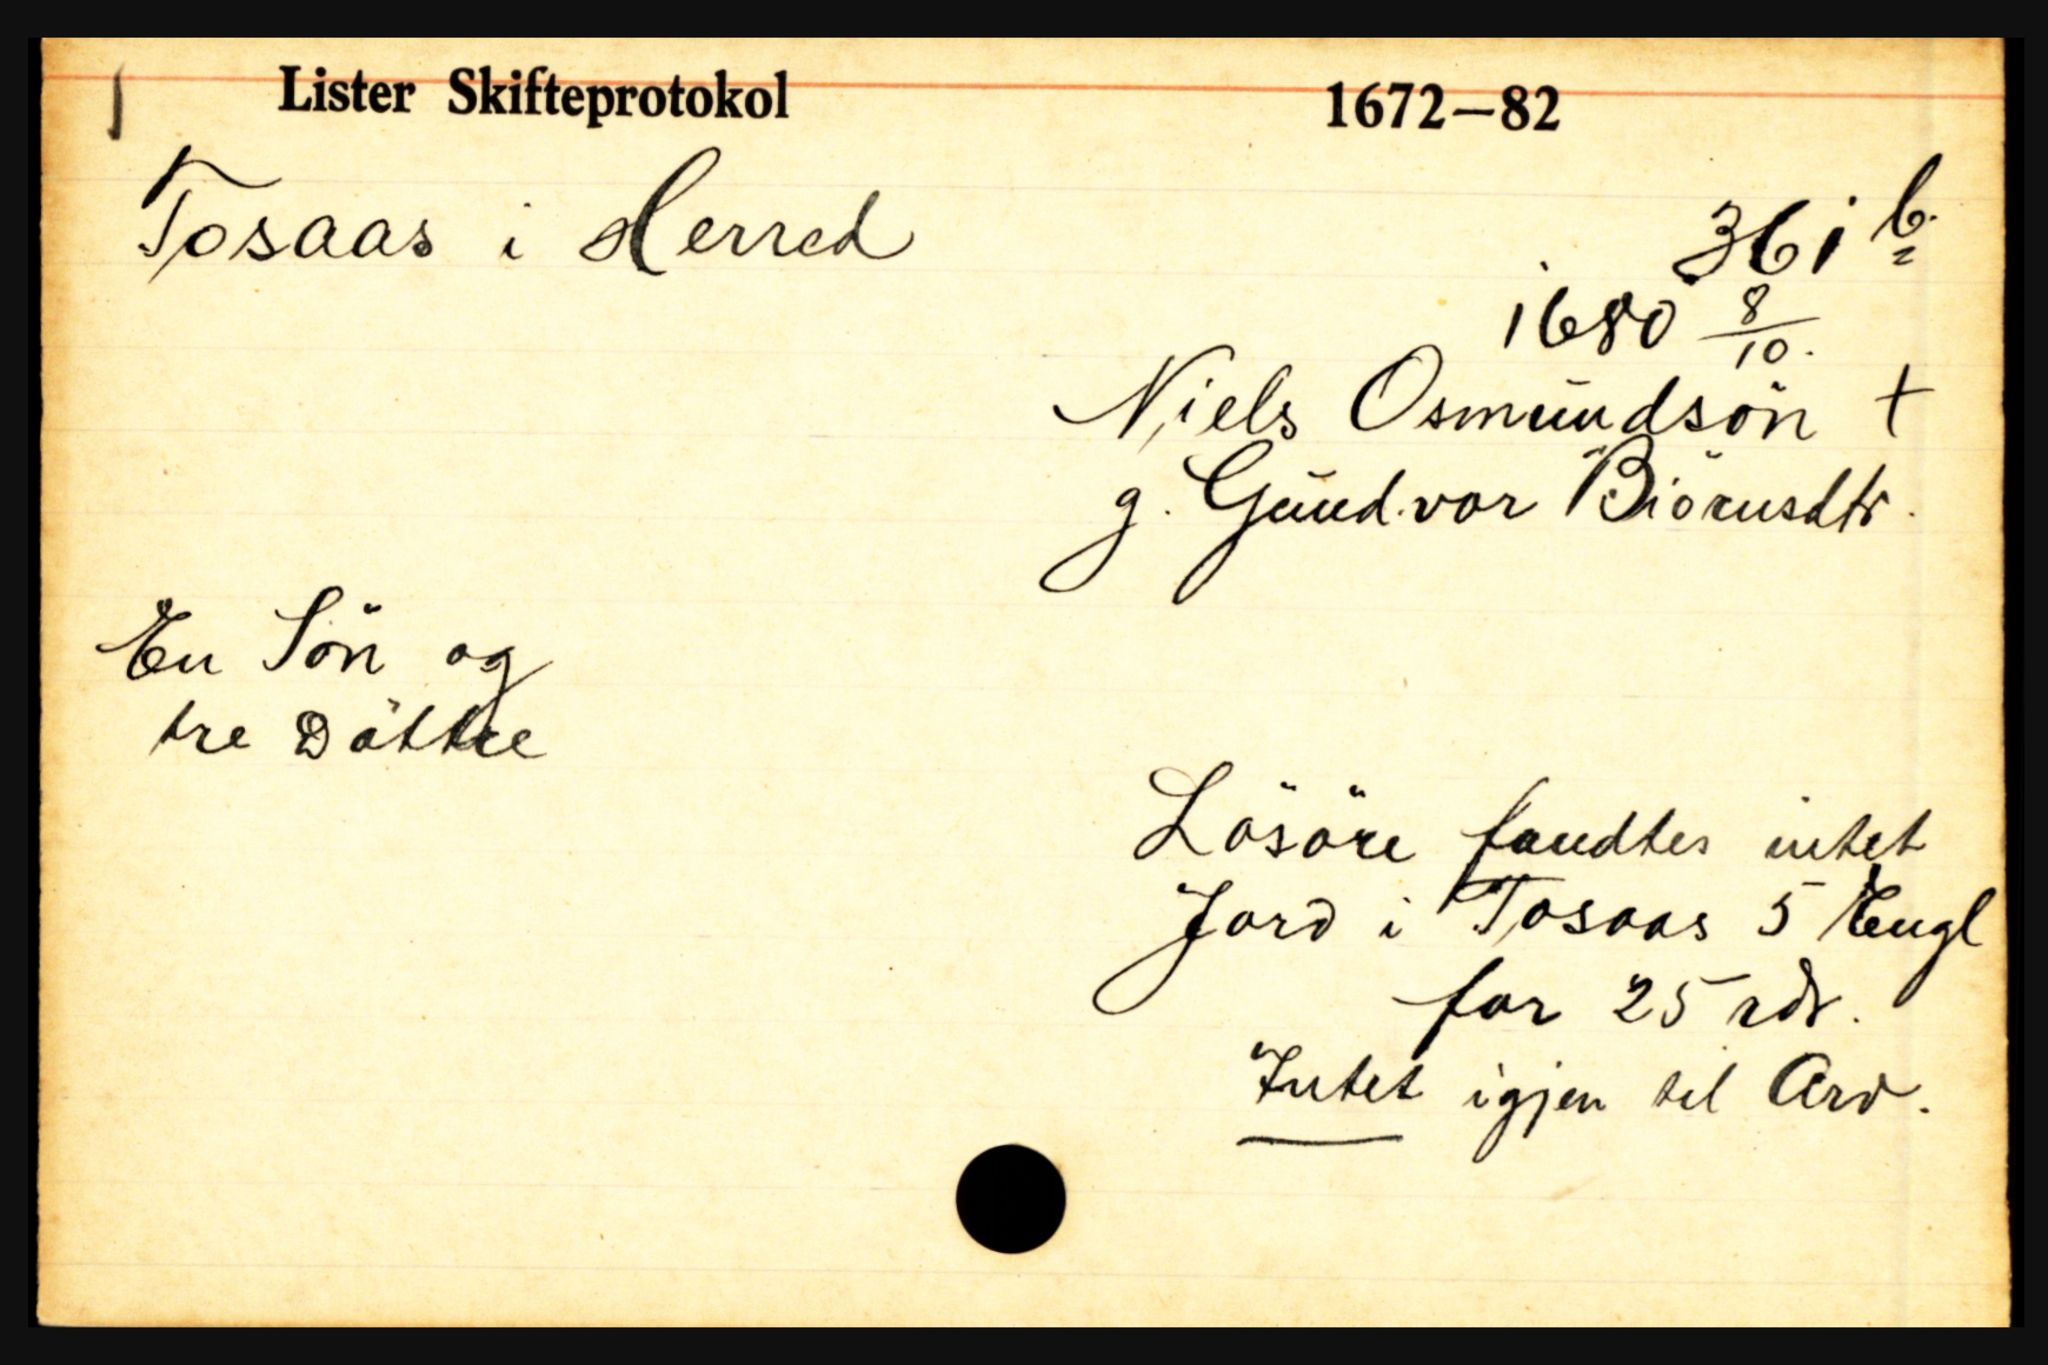 Lister Skifteprotokol 1672—82
Tosaas i Herred
361 b.
1680 8/10.
Niels Osmundsön +
g. Gundvor Biörnsdtr.
En Sön og
tre Döttre
Lösöre fandtes intet
Jord i Tosaas 5 Engl
for 25 rdr.
Intet igjen til Arv.